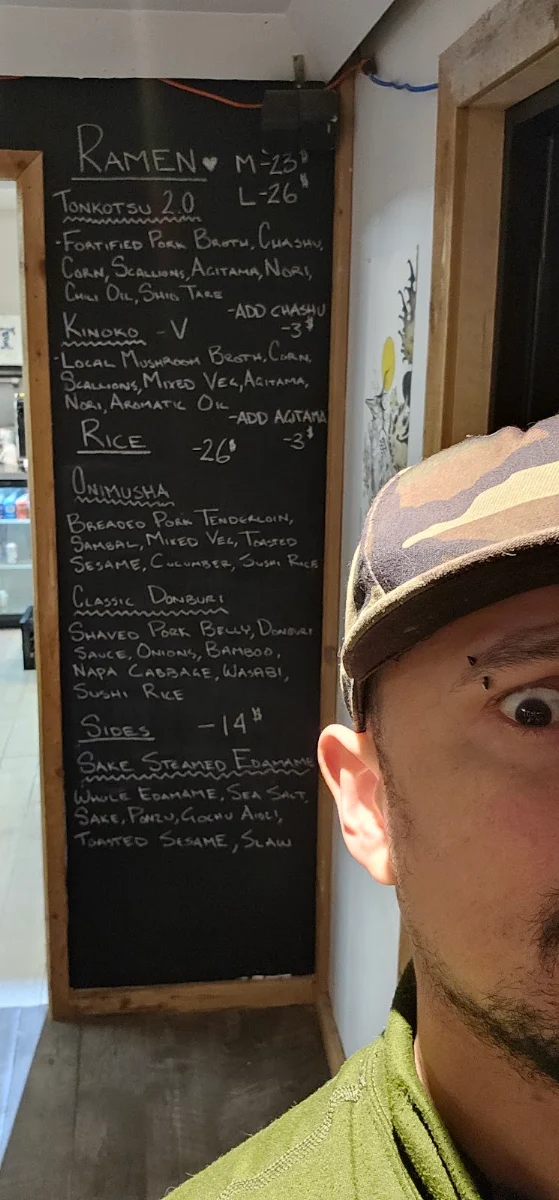 RAMEN ♥ M-23$
L-26$
TONKOTSU 2.0
-FORTIFIED PORK BROTH, CHASHU,
CORN, SCALLIONS, AGITAMA, NORI,
CHILI OIL, SHIO TARE
-ADD CHASHU
-3$
KINOKO -V
-LOCAL MUSHROOM BROTH, CORN,
SCALLIONS, MIXED VEG, AGITAMA,
NORI, AROMATIC OIL
-ADD AGITAMA
-3$
RICE -26$
ONIMUSHA
BREADED PORK TENDERLOIN,
SAMBAL, MIXED VEG, TOASTED
SESAME, CUCUMBER, SUSHI RICE
CLASSIC DONBURI
SHAVED PORK BELLY, DONBURI
SAUCE, ONIONS, BAMBOO,
NAPA CABBAGE, WASABI,
SUSHI RICE
SIDES -14$
SAKE STEAMED EDAMAME
WHOLE EDAMAME, SEA SALT,
SAKE, PONZU, GOCHU AIOLI,
TOASTED SESAME, SLAW